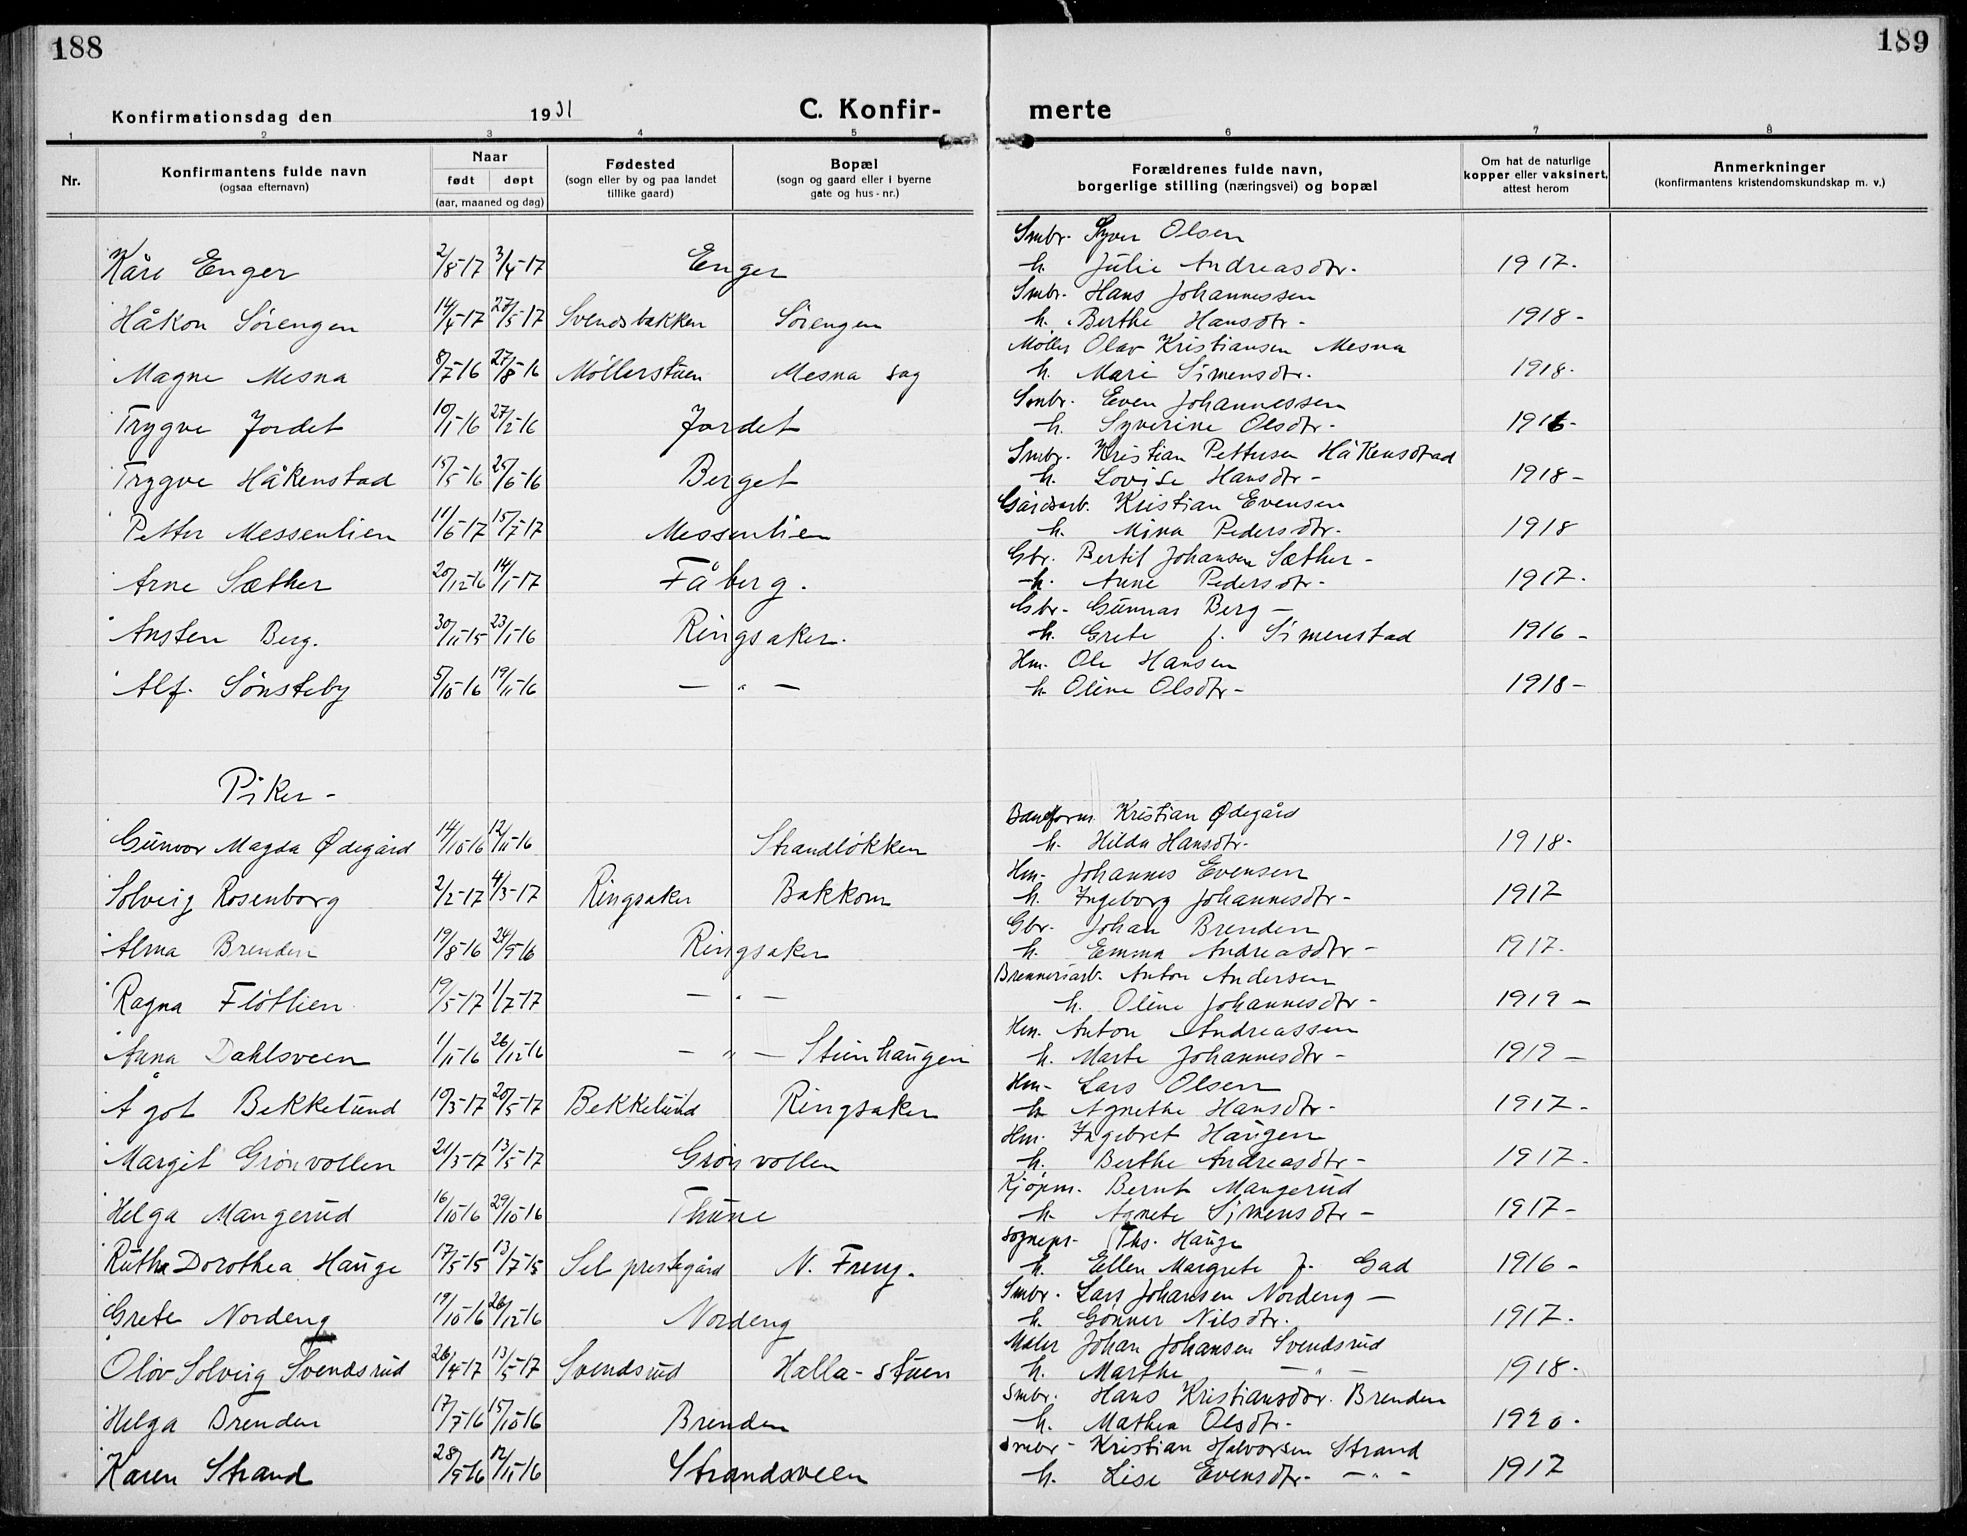 188
189
Konfirmationsdag den 1931
C. Konfir-
merte
1 2 3 4 5 6 7 8
Nr.
Konfirmantens fulde navn
(ogsaa efternavn)
Naar
født døpt
(aar, maaned og dag)
Fødested
(sogn eller by og paa landet
tillike gaard)
Bopæl
(sogn og gaard eller i byerne
gate og hus-nr.)
Forældrenes fulde navn,
borgerlige stilling (næringsvei) og bopæl
Om hat de naturlige
kopper eller vaksinert,
attest herom
Anmerkninger
(konfirmantens kristendomskundskap m. v.)
Smbr. Syver Olsen
Kåre Enger 2/8-17 3/4-17 Enger h. Julie Andreasdtr. 1917.
Smbr. Hans Johannessen
Håkon Sörengen 14/4-17 27/5-17 Svendsbakken Sörengen h. Berthe Hansdtr- 1918-
Möller Olav Kristiansen Mesna
Magne Mesna 8/7-16 27/8-16 Möllerstuen Mesna sag h. Mari Simensdtr. 1918.
Smbr. Even Johannessen
Trygve Jordet 10/1-16 27/2-16 Jordet h. Syverine Olsdtr- 1916-
Smbr. Kristian Pettersen Håkenstad
Trygve Håkenstad 15/5-16 25/6-16 Berget h. Lovise Hansdtr- 1918-
Gårdsarb. Kristian Evensen
Petter Messenlien 11/6-17 15/7-17 Messenlien h. Mina Pedersdtr. 1918
Gbr. Bertil Johansen Sæther-
Arne Sæther 20/12-16 14/1-17 Fåberg. h. Anne Pedersdtr- 1917.
Gbr- Gunnar Berg-
Austen Berg. 30/11-15 23/1-16 Ringsaker. h. Grete f. Simenstad 1916-
Hm. Ole Hansen
Alf. Sönsteby 5/10-16 19/11-16 -"- h Oline Olsdtr- 1918-
Piker-
Kristian Ødegård
Gunvor Magda Ødegård 14/10-16 12/11-16 Strandlökken h. Hilda Hansdtr. 1918.
Hm- Johannes Evensen
Solveig Rosenborg 2/2-17 4/3-17 Ringsaker Bakkom h. Ingeborg Johannesdtr- 1917
Gbr. Johan Brenden
Alma Brenden 19/8-16 24/9-16 Ringsaker h. Emma Andreasdtr- 1917.
Brenneriarb. Anton Andersen
Ragna Flötlien 19/5-17 1/7-17 -"- h. Oline Johannesdtr- 1919-
Hm. Anton Andreassen
Anna Dahlsveen 1/11-16 26/12-16 -"- Steinhaugen h. Marte Johannesdtr- 1919-
Hm- Lars Olsen
Ågot Bekkelund 10/3-17 20/5-17 Bekkelund Ringsaker h Agnethe Hansdtr- 1917-
Hm. Ingebret Haugen
Margit Grönvollen 21/3-17 13/5-17 Grönvollen h. Berthe Andreasdtr- 1917-
Kjøpm. Bernt Mangerud
Helga Mangerud 16/10-16 29/10-16 Thune h. Agnete Simensdtr- 1917-
Sognepr- Ths. Hauge
Ruth Dorothea Hauge 17/5-15 13/7-15 Sel prestegård N. Freng. h. Ellen Margrete f. Gad 1916-
Smbr. Lars Johansen Nordeng-
Grete Nordeng 19/10-16 26/12-16 Nordeng h. Gunner Nilsdtr. 1917.
Maler Johan Johansen Svendsrud
Olöv Solveig Svendsrud 26/4-17 13/5-17 Svendsrud Halla-stuen h. Marthe -"- 1918-
Smbr. Hans Kristiansdtr. Brenden
Helga Brenden 17/7-16 15/10-16 Brenden h. Mathea Olsdtr. 1920.
Smbr- Kristian Halvorsen Strand
Karen Strand 28/9-16 12/11-16 Strandsveen h. Lise Evensdtr. -"- 1917